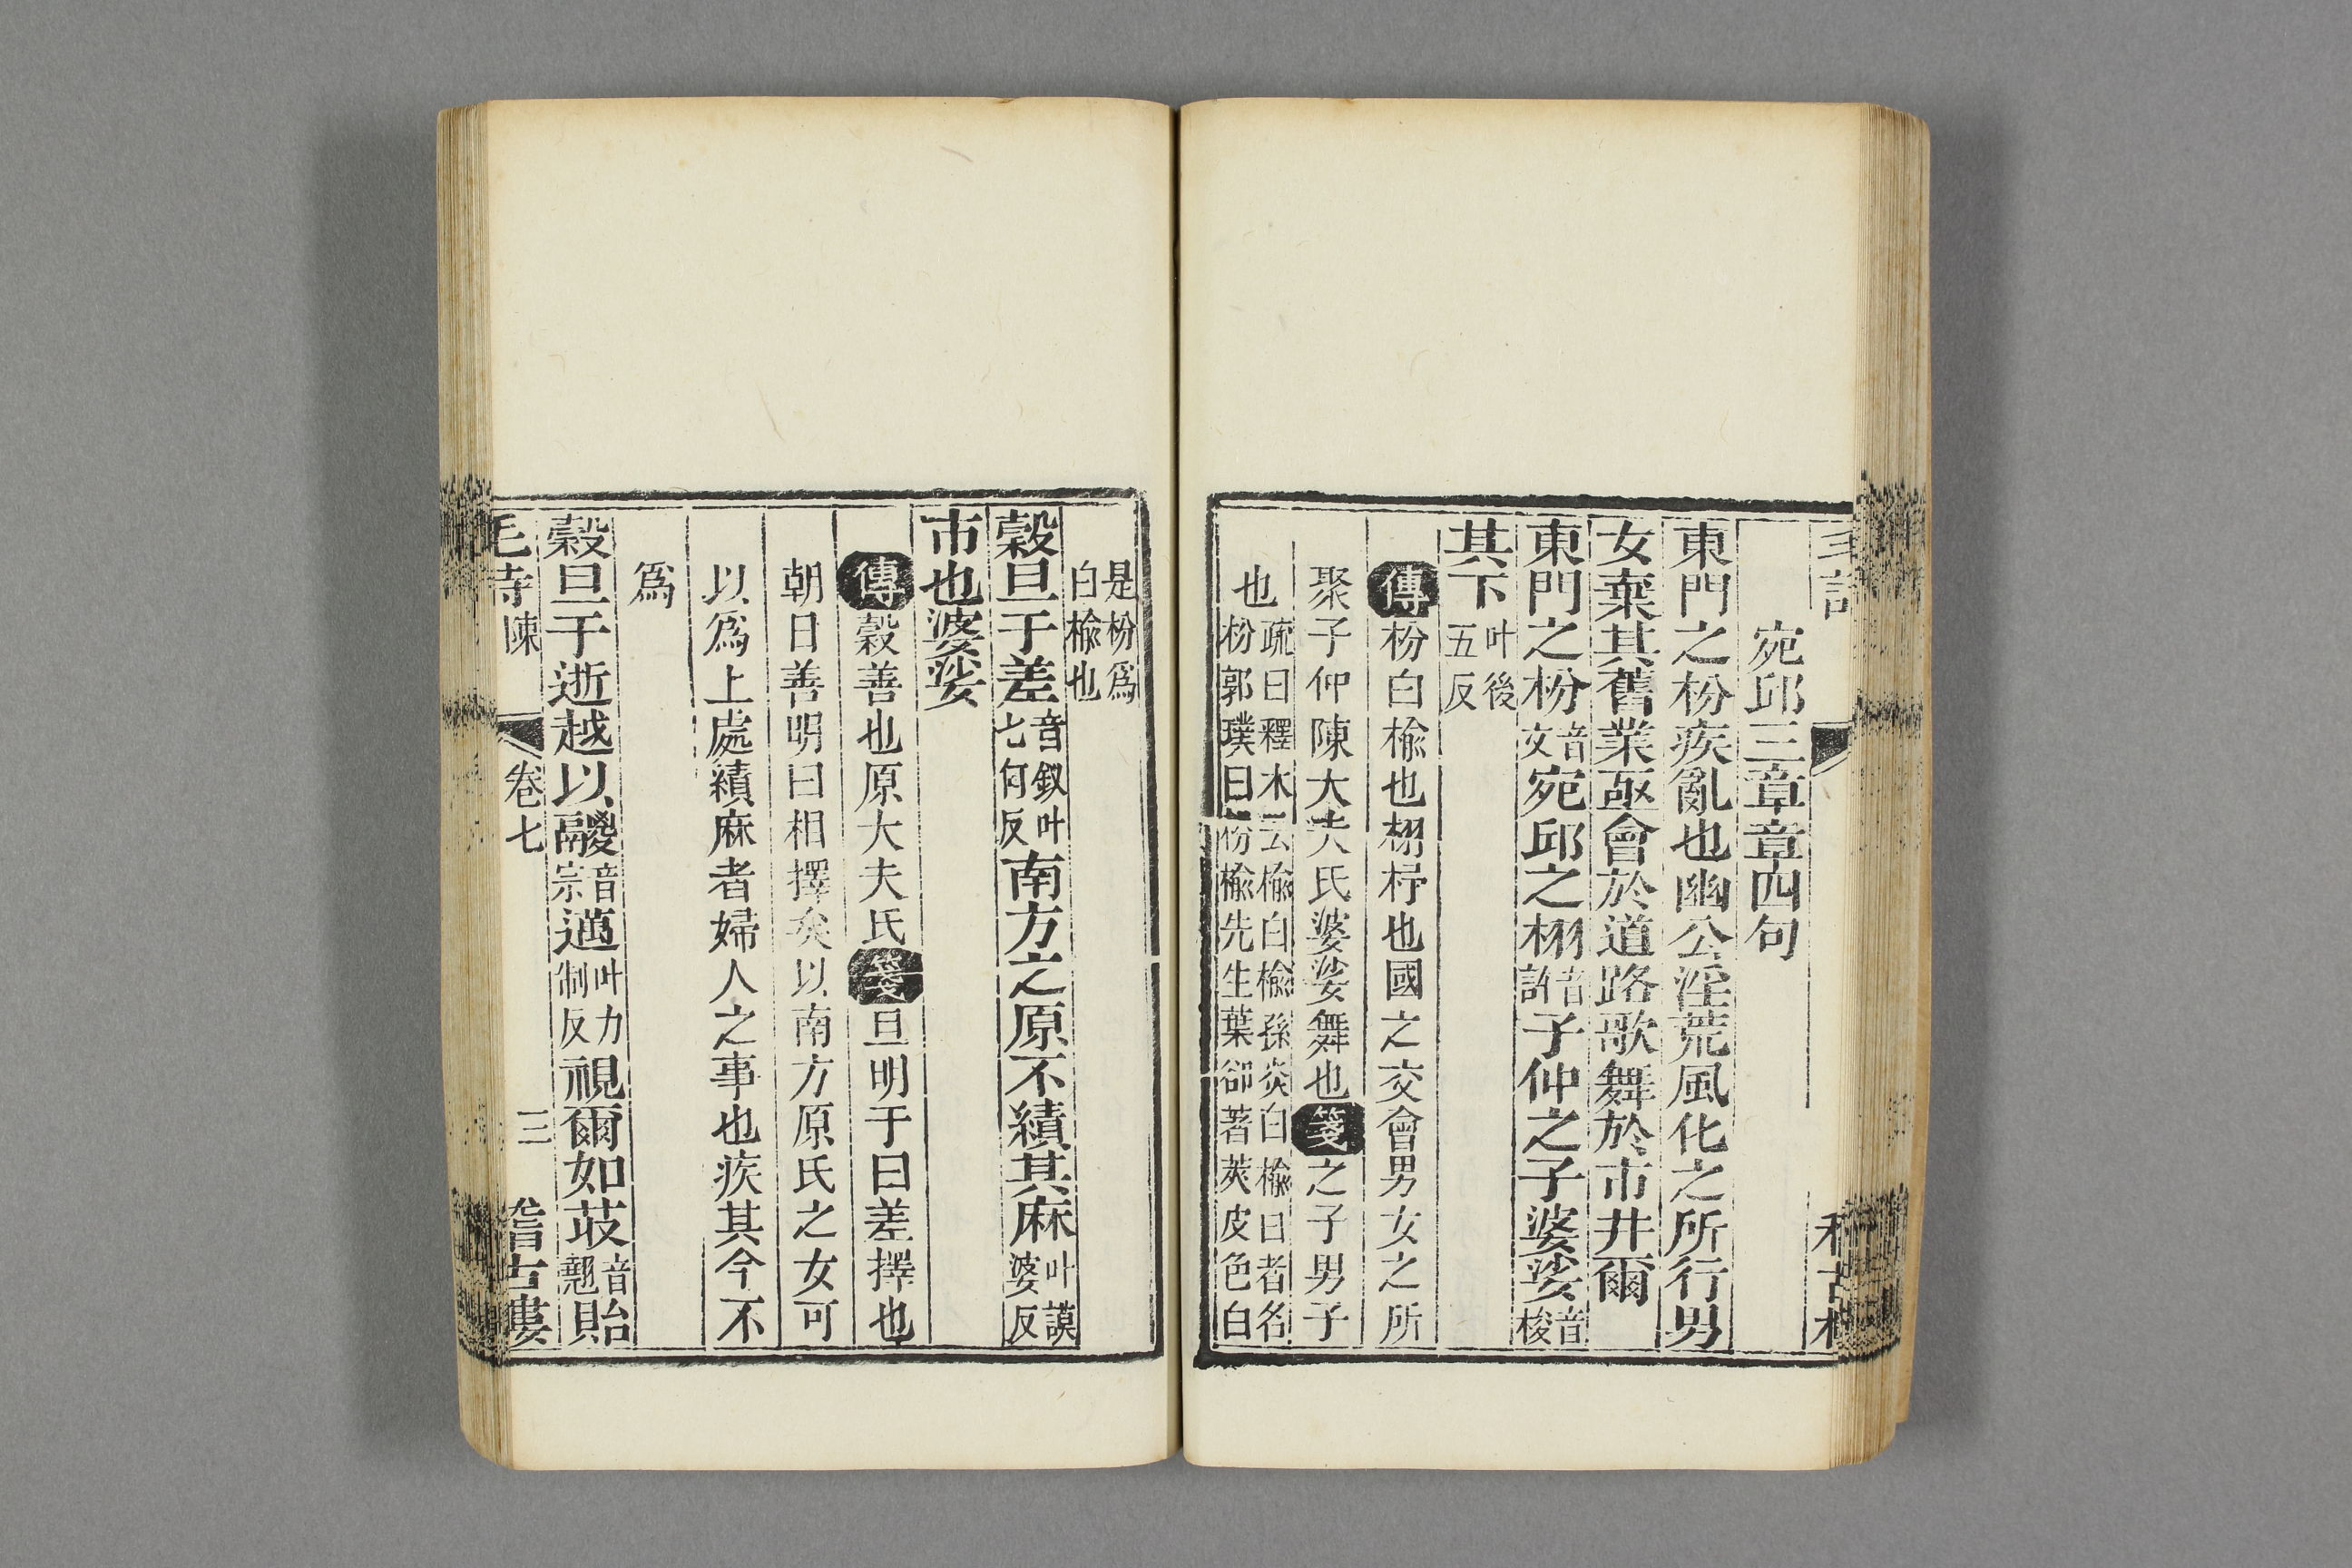 宛邱三章章四句
東門之枌疾亂也幽公淫荒風化之所行男
女棄其舊業亟會於道路歌舞於市井爾
東門之枌音文宛邱之栩音許子仲之子婆娑音梭
其下叶後五反
傳枌白榆也栩杼也國之交會男女之所
聚子仲陳大夫氏婆娑舞也箋之子男子
也疏曰釋木云榆白榆孫炎白榆曰者名枌郭璞曰枌榆先生葉卻著莢皮色白
是枌爲白榆也
穀旦于差音釵叶七何反南方之原不績其麻叶謨婆反
市也婆娑
傳穀善也原大夫氏箋旦明于曰差擇也
朝日善明曰相擇矣以南方原氏之女可
以爲上處績麻者婦人之事也疾其今不
爲
穀旦于逝越以鬷音宗邁叶力制反視爾如荍音翹貽
毛詩陳 卷七 三 稽古樓